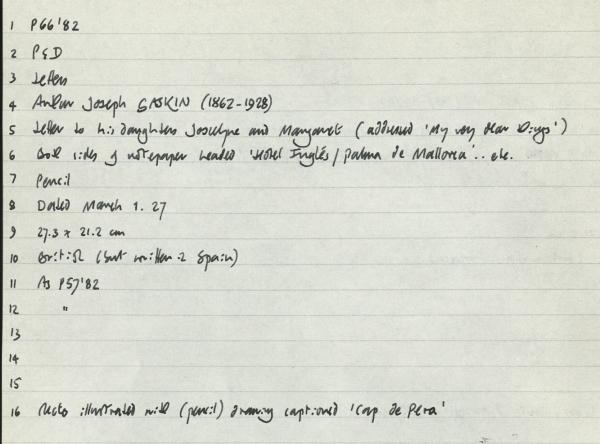 1 P66'82
2 P&D
3 Letters
4 Arthur Joseph GASKIN (1862-1928)
5 Letter to his daughters Joscelyne and Margaret (addressed 'My very dear
6 Both sides of notepaper headed 'Hotel Inglés / Palma de Mallorca'.. etc.
7 Pencil
8 Dated March 1. 27
9 27.3 x 21.2 cm
10 British (but written in Spain)
11 As P57'82
12 "
13
14
15
16 Recto illustrated with (pencil) drawing captioned 'Cap de Pera'